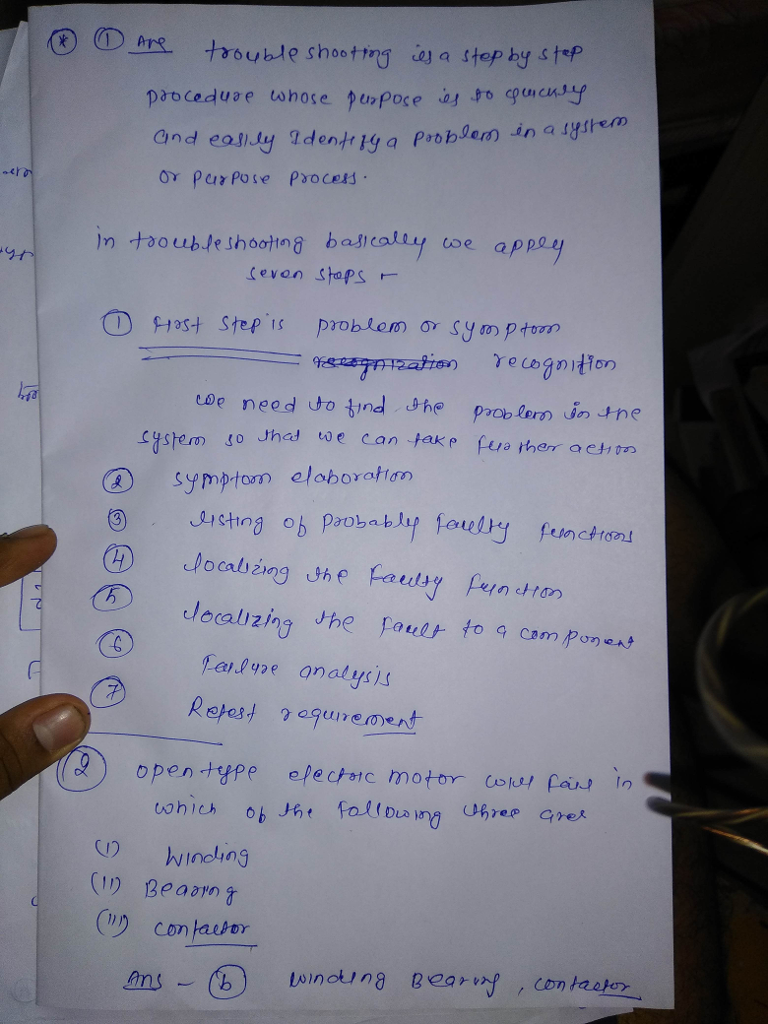 * ① Ans troubleshooting is a step by step
procedure whose purpose is to quickly
and easily Identify a problem in a system
or purpose process.
in troubleshooting basically we apply
seven steps -
① First step is problem or symptom
recognization recognition
we need to find the problem in the
system so that we can take further action
② symptom elaboration
③ listing of probably faulty functions
④ localizing the faulty function
⑤ localizing the fault to a component
⑥ Failure analysis
⑦ Retest requirement
② open type electric motor will fail in
which of the following three area
(i) Winding
(ii) Bearing
(iii) contactor
Ans - ⓑ winding Bearing, contactor